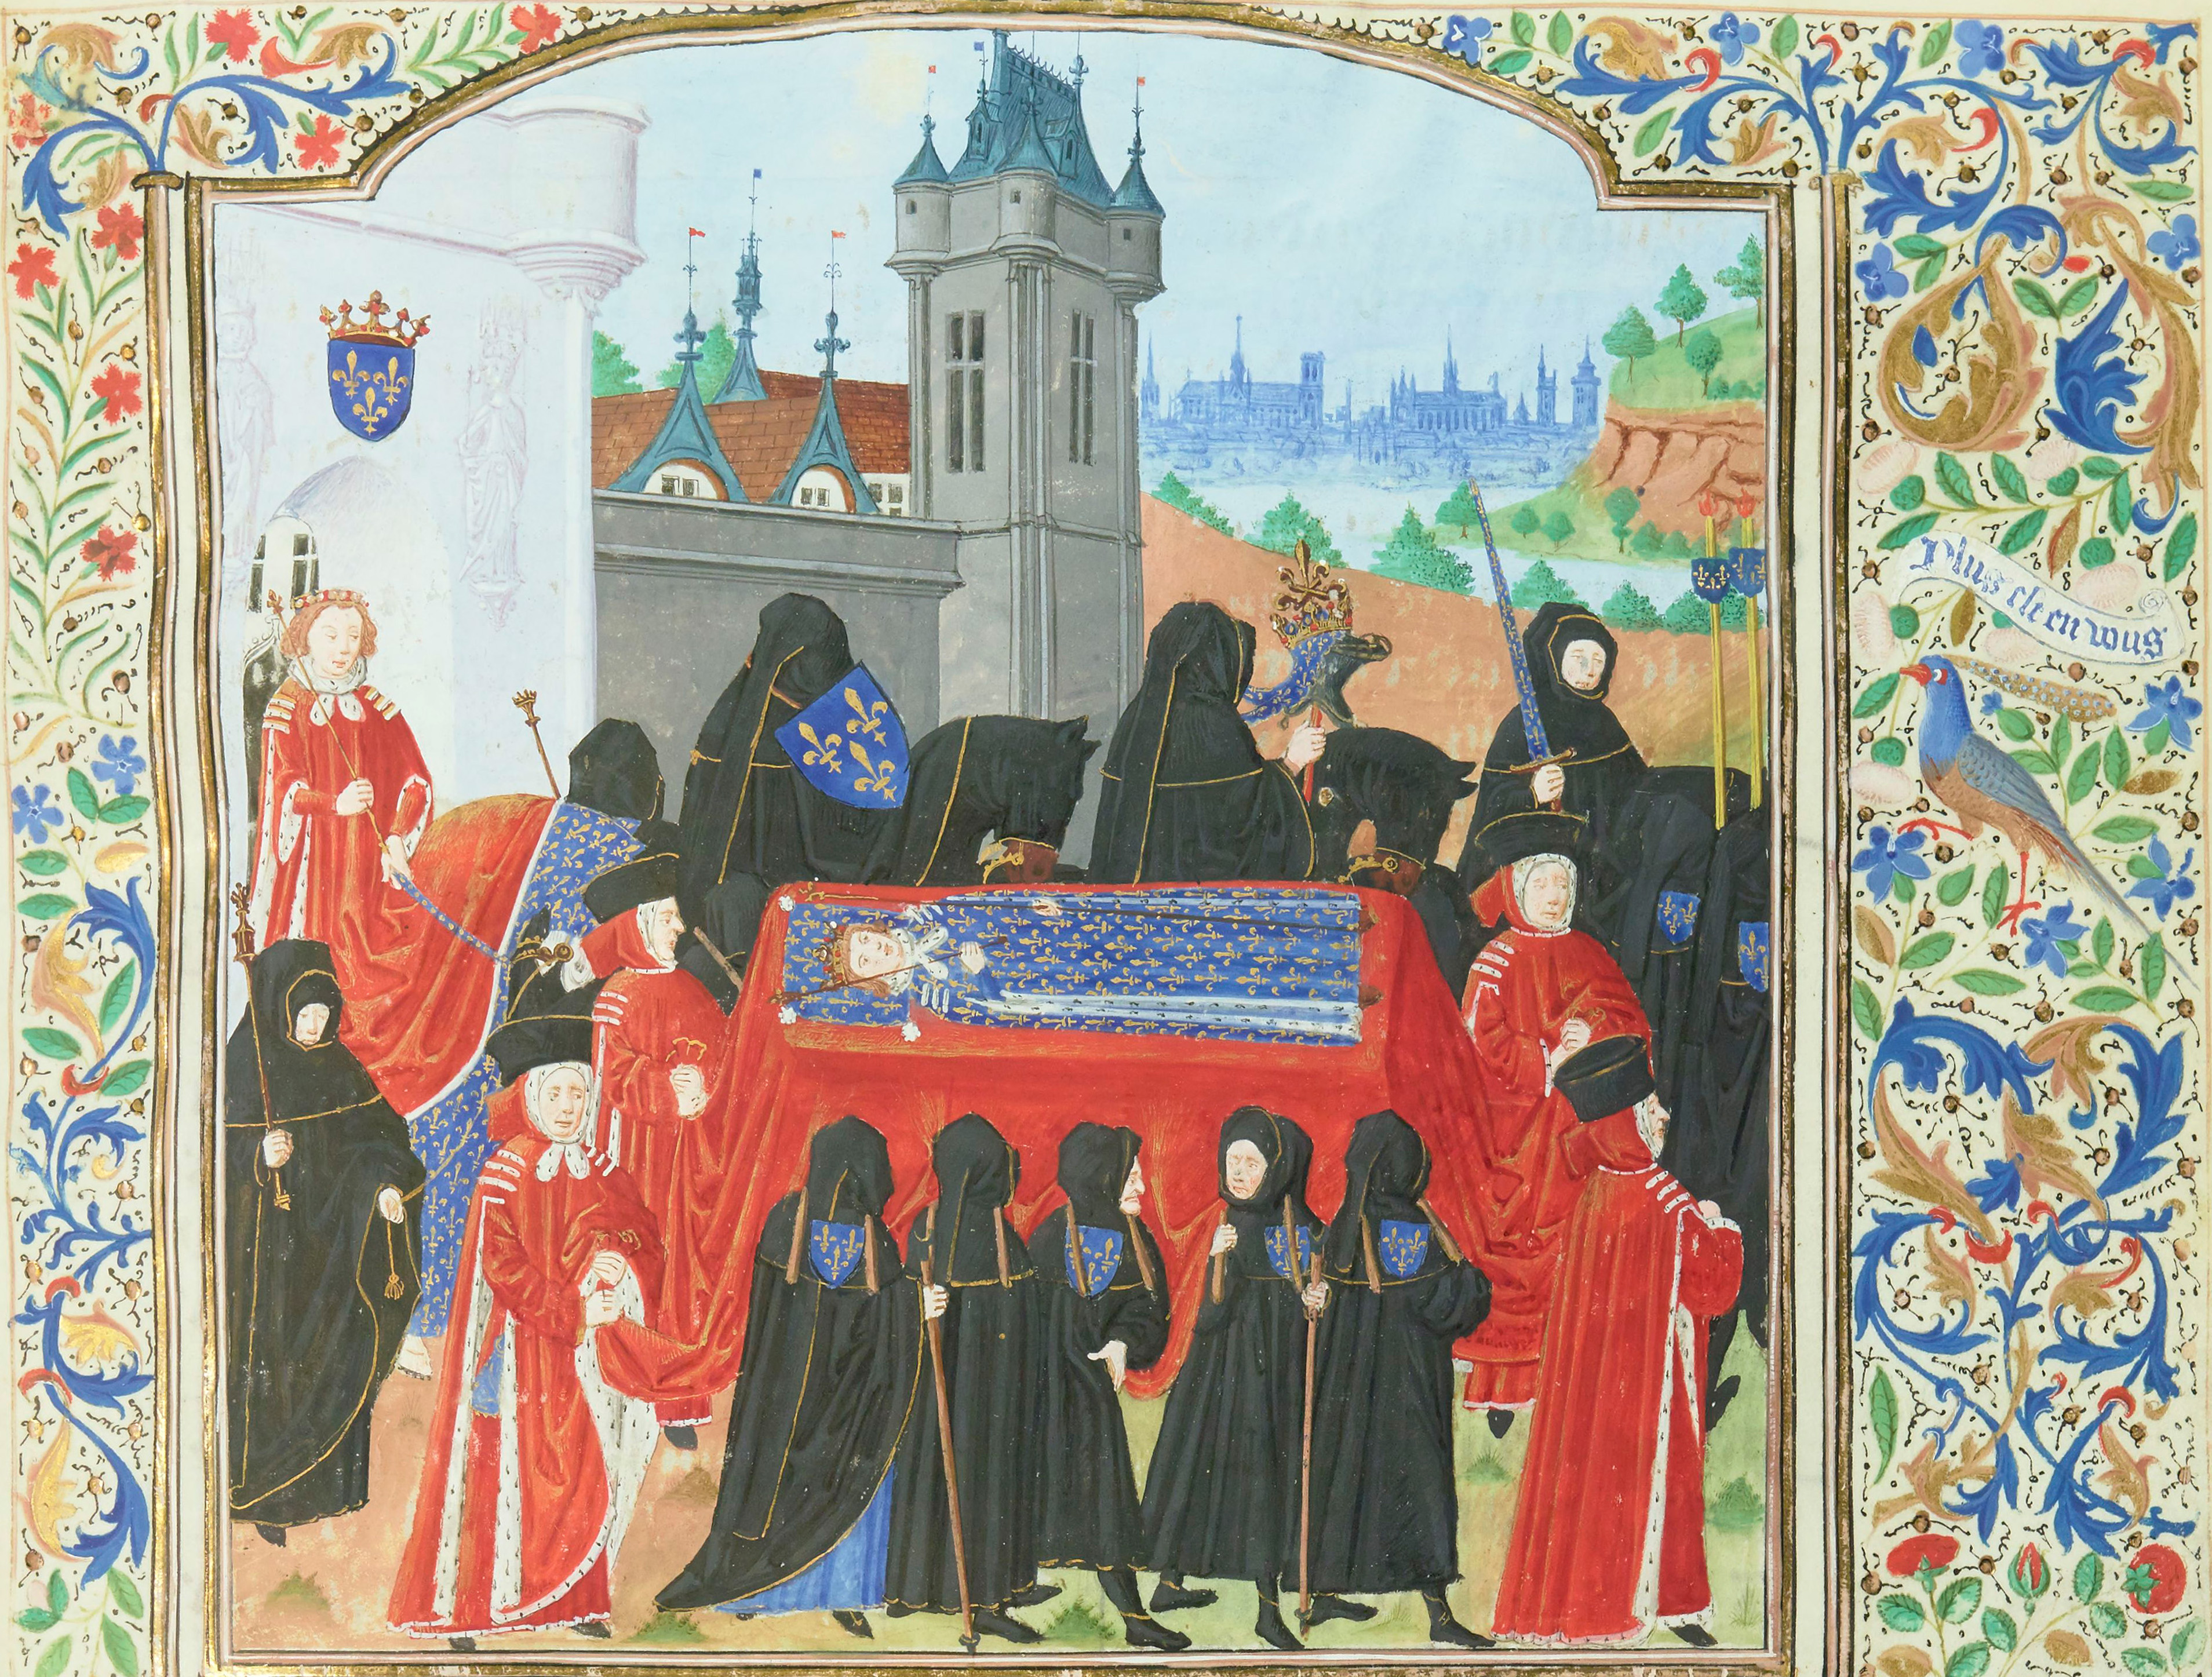 Plus est en vous